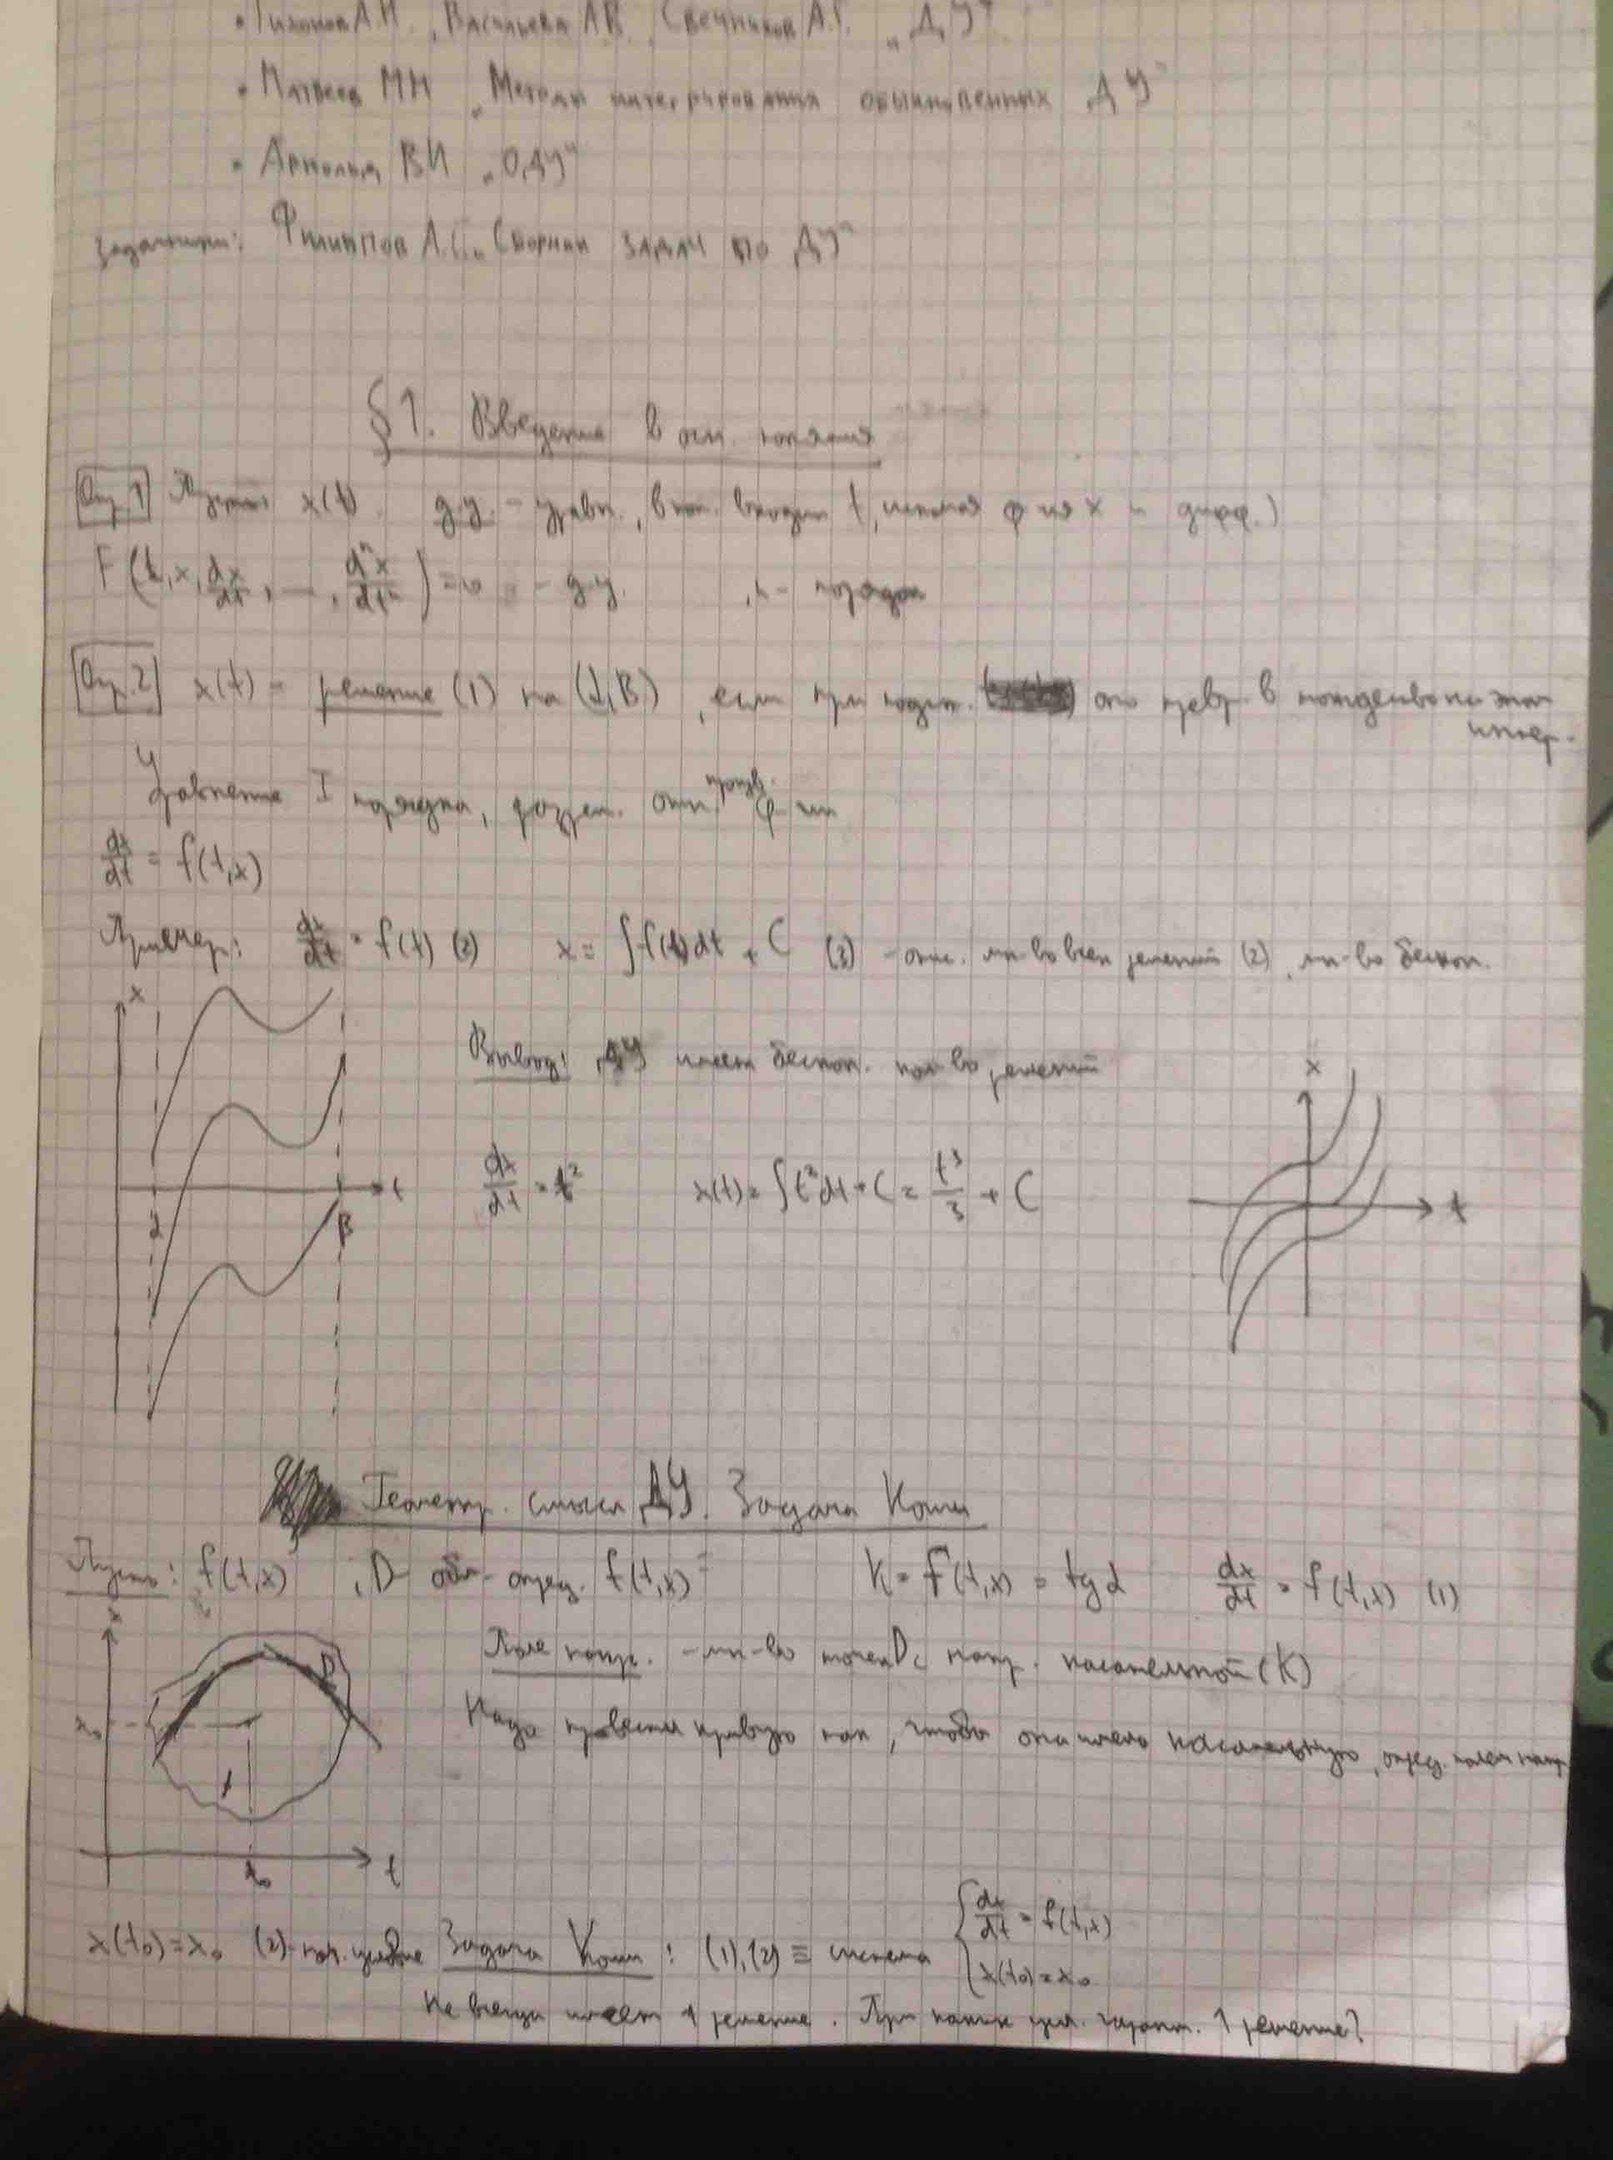 • Тихонов А.Н., Васильева А.Б., Свешников А.Г. „ДУ"
• Матвеев МН „Методы интегрирования обыкновенных ДУ"
• Арнольд ВИ „ОДУ"
Задачники: Филиппов А.С. „Сборник задач по ДУ"
§1. Введение в осн. понятия
Опр.1 Пусть x(t). д.у. - уравн., в кот. входит t, искомая ф-ия x и дифф.)
F(t, x, dx/dt, ..., dⁿx/dtⁿ) = 0 - д.у. n - порядок
Опр.2 x(t) - решение (1) на (α, β), если при подст. оно превр. в тождество на этом
интер.
Уравнение I порядка, разреш. отн. произв. ф-ии
dx/dt = f(t,x)
Пример: dx/dt = f(t) (2) x = ∫f(t)dt + C (3) - опис. мн-во всех решений (2), мн-во бескон.
x
Вывод: ДУ имеет бескон. кол-во решений
x
dx/dt = t² x(t) = ∫t²dt + C = t³/3 + C
t
α β
t
Геометр. смысл ДУ. Задача Коши
Пусть: f(t,x) , D - обл. опред. f(t,x) K = f(t,x) = tg α dx/dt = f(t,x) (1)
x
Поле напр. - мн-во точек D с напр. касательной (K)
D
x₀
Надо провести кривую так, чтобы она имела касательную, опред. полем напр
t₀ t
x(t₀) = x₀ (2) - нач. условие Задача Коши: (1),(2) ≡ система { dx/dt = f(t,x)
x(t₀) = x₀
Не всегда имеет 1 решение. При каких усл. гарант. 1 решение?